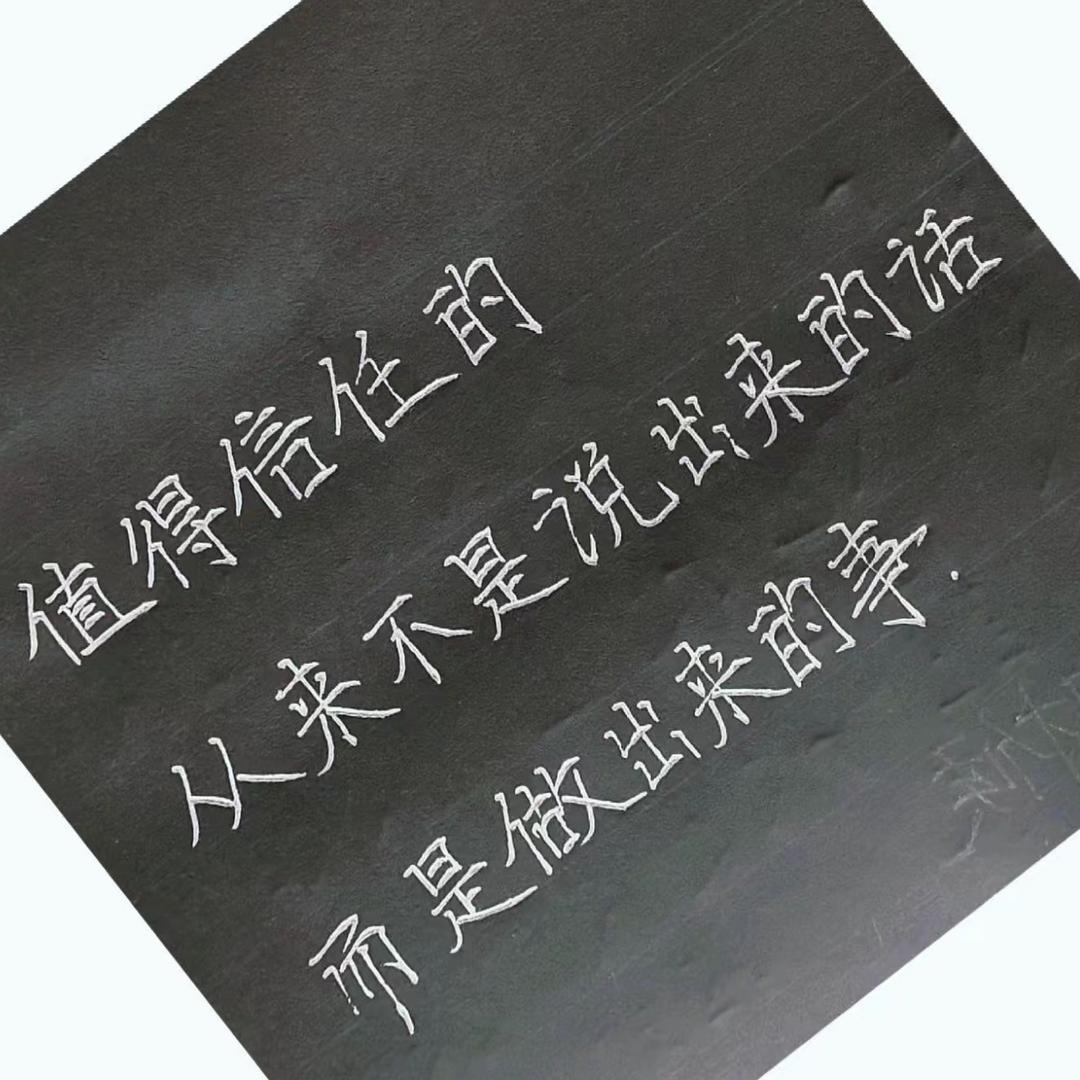 值得信任的
从来不是说出来的话
而是做出来的事.